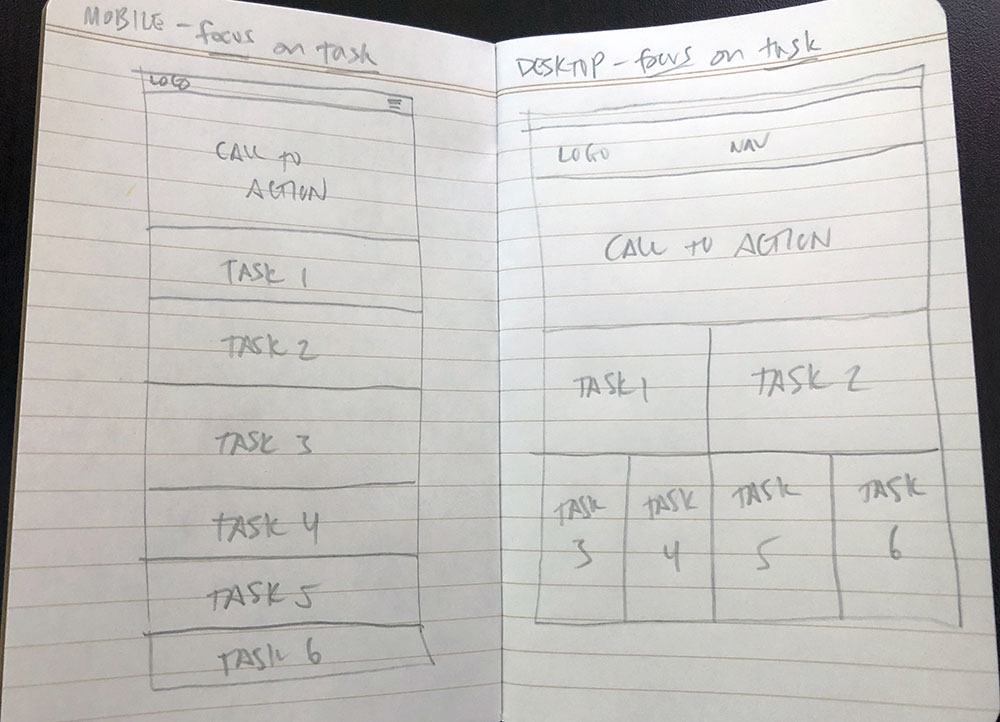 MOBILE - focus on task
LOGO
CALL to
ACTION
TASK 1
TASK 2
TASK 3
TASK 4
TASK 5
TASK 6
DESKTOP - focus on task
LOGO NAV
CALL to ACTION
TASK 1 TASK 2
TASK TASK TASK TASK
3 4 5 6